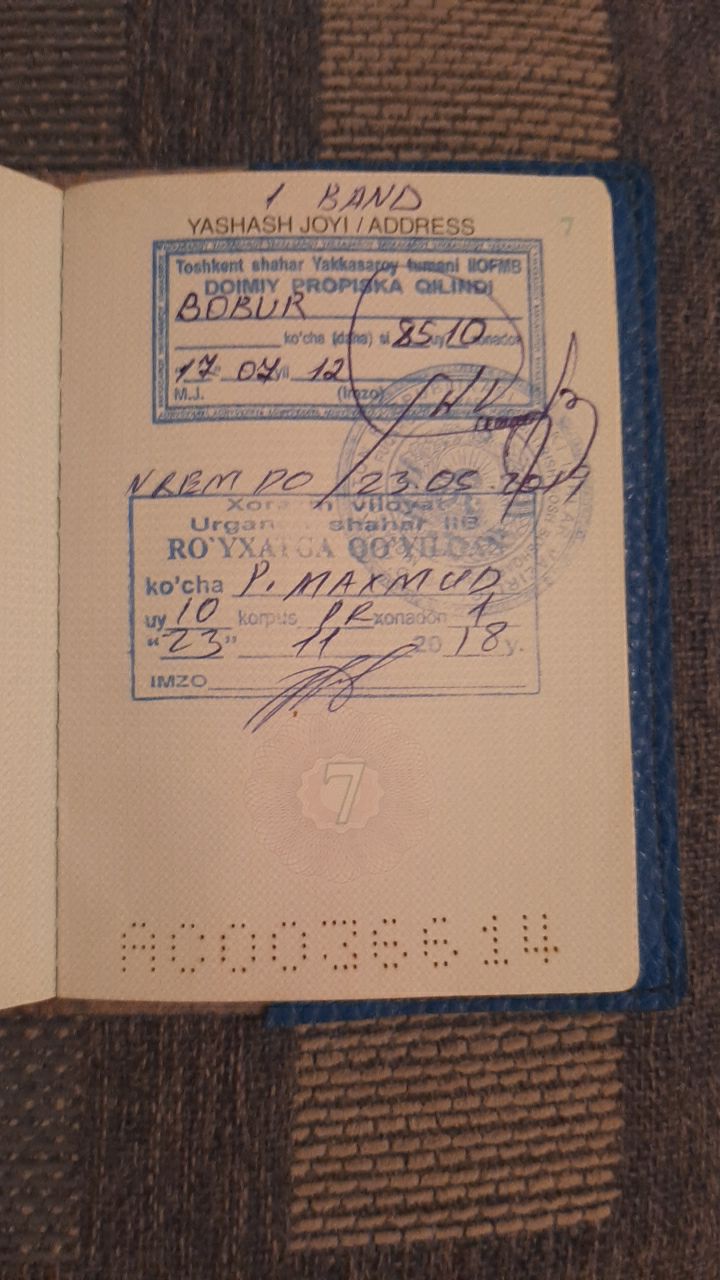 1 BAND
YASHASH JOYI / ADDRESS 7
Toshkent shahar Yakkasaroy tumani IIOFMB
DOIMIY PROPISKA QILINDI
BOBUR
ko'cha (daha) si 85 uy 10 xonadon
"17" 07 yil 12
M.J. (Imzo)
VREM DO 23.05.2019
Xorazm viloyat
Urganch shahar IIB
RO'YXATGA QO'YILGAN
ko'cha P. MAXMUD
uy 10 korpus PR xonadon 1
"23" 11 2018 y.
IMZO
7
AC0036614